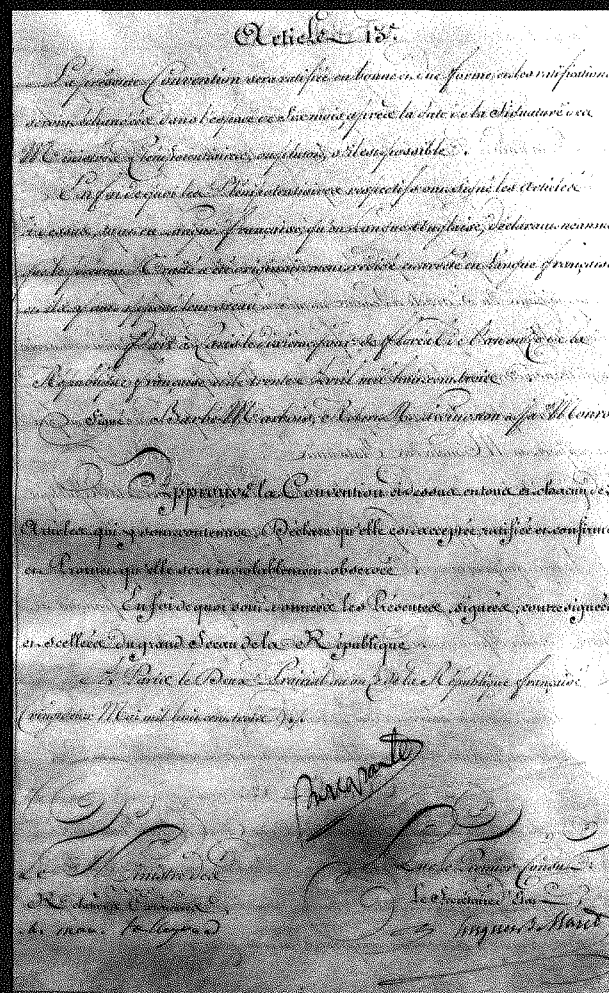 Article 13.e
La présente Convention sera ratifiée en bonne et due forme, et les ratifications
seront échangées dans l'espace de Six mois après la date de la Signature des
Ministres Plénipotentiaires, ou plutôt, s'il est possible.
En foi de quoi les Plénipotentiaires respectifs ont signé les articles
ci-dessus, tant en langue française, qu'en langue anglaise, déclarant néanmoins
que le présent Traité a été originairement rédigé et arrêté en langue française
et ils y ont apposé leur sceau
Fait à Paris le dixième jour de floréal de l'an onze de la
République française et le trente Avril mil huit cent trois.
Signé Barbé Marbois, Robt R Livingston et Jas Monro
Approuve la Convention ci dessus en tous et chacun des
Articles qui y sont contenus, Déclare qu'elle est acceptée, ratifiée et confirmé
et Promet qu'elle sera inviolablement observée.
En foi de quoi sont données les Présentes, signées, contresignées
et scellées du grand Sceau de la République
à Paris le Deux Prairial an de la République française
vingt deux Mai mil huit cent trois
Bonaparte
Le Ministre des
Relations Extérieures
ch. mau. talleyrand
Par le Premier Consul
Le Secrétaire d'Etat
hugues B. Maret